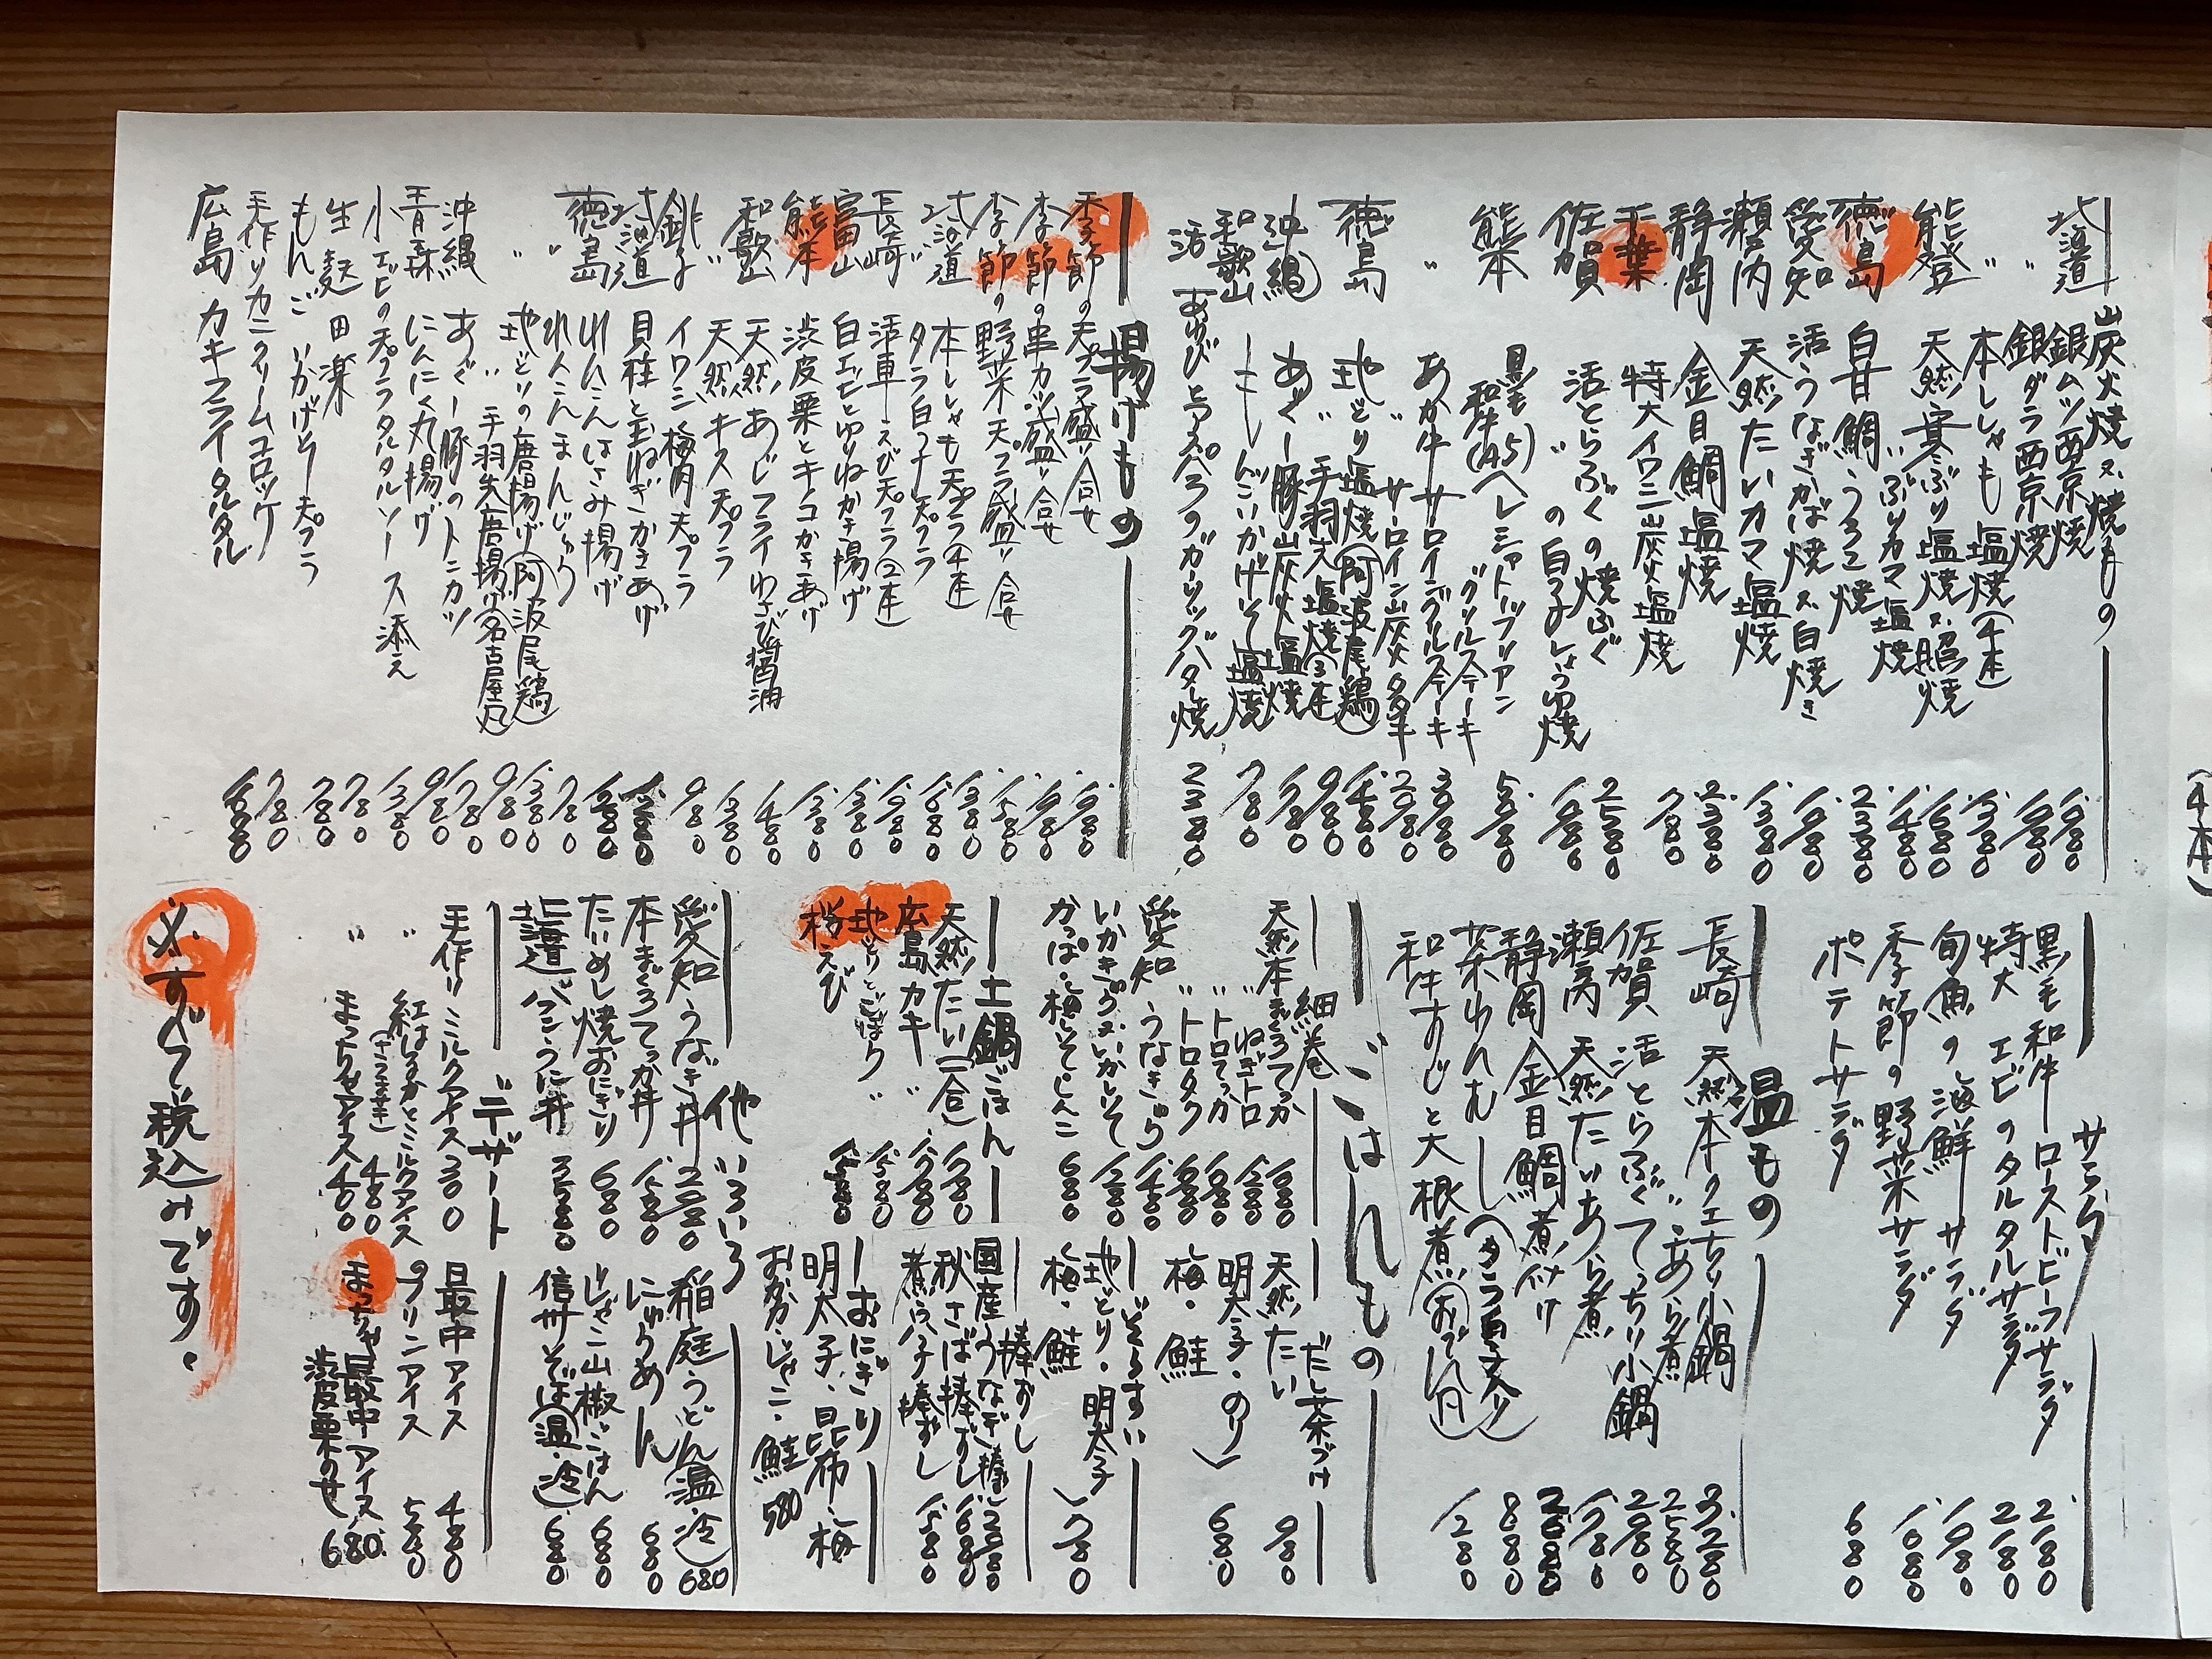 炭火焼又焼もの
北海道 銀ムツ西京焼 1,980
〃 銀ダラ西京焼 1,980
〃 本ししゃも塩焼(4本) 1,380
能登 天然寒ぶり塩焼又照焼 1,680
〃 ぶりカマ塩焼 1,480
徳島 白甘鯛うろこ焼 2,380
愛知 活うなぎかば焼又白焼き 1,980
瀬戸内 天然たいカマ塩焼 1,380
静岡 金目鯛塩焼 2,380
千葉 特大イワシ炭火塩焼 780
佐賀 活とらふぐの焼ふぐ 2,580
〃 の白子しょうゆ焼
熊本 黒毛和牛(A5)ヘレシャトーブリアングリルステーキ 5,880
〃 あか牛サーロイングリルステーキ 3,980
〃 サーロイン炭火タタキ 2,980
徳島 地どり塩焼(阿波尾鶏) 1,480
〃 手羽先塩焼(3本) 980
沖縄 あぐー豚炭火塩焼 1,780
和歌山 もんごいかげそ塩焼 780
活あわびとアスパラのガーリックバター焼 2,380
揚げもの
季節の天プラ盛り合せ 1,980
季節の串カツ盛り合せ 1,980
季節の野菜天プラ盛り合せ 1,580
北海道 本ししゃも天プラ(4本) 1,380
〃 タラ白子天プラ 1,680
長崎 活車えび天プラ(2本) 1,980
富山 白エビとゆりねかき揚げ 1,380
熊本 渋皮栗とキノコかきあげ 1,380
和歌山 天然あじフライわさび醤油 1,480
〃 天然キス天プラ 1,380
銚子 イワシ梅肉天プラ 980
北海道 貝柱と玉ねぎかきあげ
れんこんはさみ揚げ
れんこんまんじゅう 780
徳島 地どりの唐揚げ(阿波尾鶏) 1,380
〃 〃 手羽先唐揚げ(名古屋風) 980
沖縄 あぐー豚のトンカツ 1,780
青森 にんにく丸揚げ 980
小エビの天プラタルタルソース添え 1,380
生麩田楽 780
もんごいかげそ天プラ 780
手作りカニクリームコロッケ 780
広島 カキフライタルタル
サラダ
黒毛和牛ローストビーフサラダ 2,180
特大エビのタルタルサラダ 2,180
旬魚の海鮮サラダ 1,980
季節の野菜サラダ 1,080
ポテトサラダ 680
温もの
長崎 天然本クエちり小鍋 3,280
〃 あら煮 2,580
佐賀 活とらふぐてっちり小鍋 2,980
瀬戸内 天然たいあら煮 1,780
静岡 金目鯛煮付け
茶わんむし 880
和牛すじと大根煮(おでん風) 1,280
ごはんもの
細巻
天然本まぐろてっか 1,680
〃 ねぎトロ 1,280
〃 トロてっか 1,680
〃 トロタク 1,680
愛知 うなきゅう 1,480
いかきゅう又いかしそ 1,280
かっぱ・梅しそ・しんこ 680
だし茶づけ
天然たい 980
明太子・のり
梅・鮭 680
ぞうすい
地どり・明太子
梅・鮭 780
土鍋ごはん
天然たい(一合) 1,780
広島カキ 〃 1,980
地どりとごぼう 〃 1,580
桜えび
棒ずし
国産うなぎ棒ずし 2,980
秋さば棒ずし 1,680
煮穴子棒ずし 1,580
おにぎり
明太子・昆布・梅
おかか・じゃこ・鮭 580
他いろいろ
愛知うなぎ丼 2,980
本まぐろてっか丼 1,580
たいめし焼おにぎり 680
北海道バフンうに丼 3,580
稲庭うどん(温・冷) 680
にゅうめん 680
じゃこ山椒ごはん 680
信州そば(温・冷) 680
デザート
手作りミルクアイス 300
〃 紅はるかとミルクアイス(さつま芋) 480
〃 まっちゃアイス 400
最中アイス 480
プリンアイス 580
まっちゃ最中アイス渋皮栗のせ 680
※すべて税込みです。